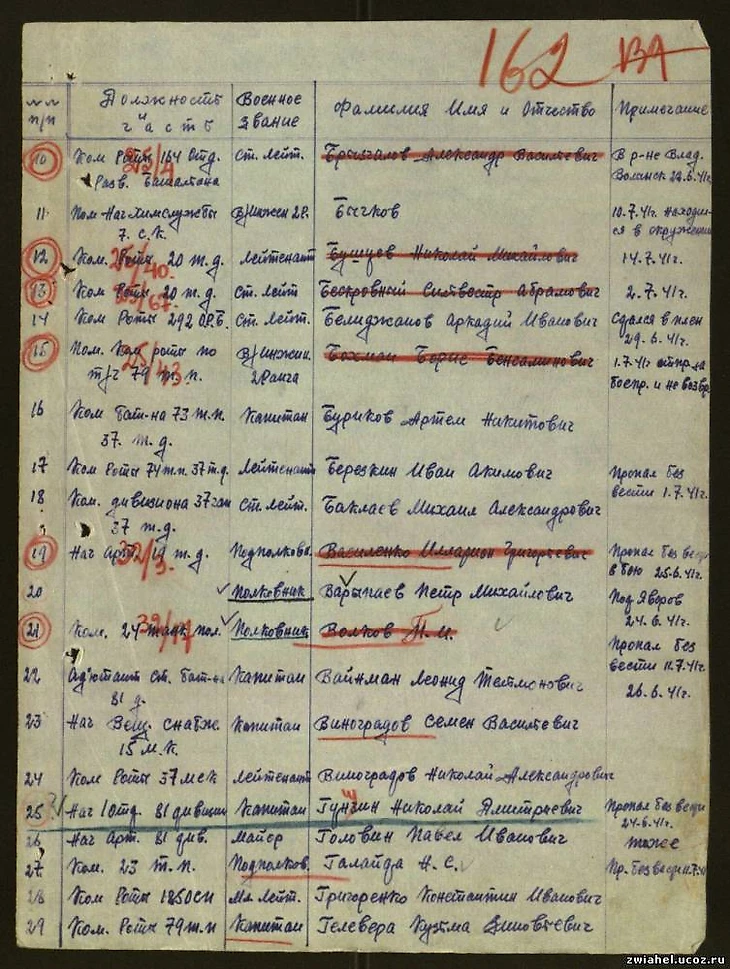 162 ВА
№№ п/п Должность и часть Военное звание Фамилия Имя и Отчество Примечание
10 Ком Роты 164 Отд. Ст. лейт. Брызгалов Александр Васильевич В р-не Влад.
Разв. Батальона Волынск 24.6.41г.
25/4
11 Пом Нач Химслужбы В/Инжен 2Р. Бычков 10.7.41г. находил-
7. с.к. ся в окружении
12 Ком. Роты 20 т.д. Лейтенант Бушуев Николай Михайлович 14.7.41г.
13 Ком Роты 20 т.д. Ст. лейт Бескровный Сильвестр Абрамович 2.7.41г.
14 Ком Роты 292 ОРБ. Ст. лейт. Белиджанов Аркадий Иванович Сдался в плен
29.6.41г.
15 Пом. Ком роты по В/Инжен. Бохман Борис Бенсаминович 1.7.41г отпр. на
т/ч 79 т.п. 2 Ранга боепр. и не возвр.
25/43
16 Ком Бат-на 73 т.п. Капитан Буриков Артем Никитович
37. т.д.
17 Ком Роты 74 т.п. 37 т.д. Лейтенант Березкин Иван Акимович Пропал без
вести 1.7.41г.
18 Ком. дивизиона 37 гап Ст. лейт. Баклаев Михаил Александрович
37 т.д.
19 Нач Арт. 19 т.д. Подполковн. Василенко Илларион Григорьевич Пропал без вести
в бою 25.6.41г.
32/3
20 Полковник Варыпаев Петр Михайлович Под Яворов
24.6.41г.
21 Ком. 24 танк. пол. Полковник Волков П.И. Пропал без
вести 11.7.41г.
22 Адъютант ст. бат-на Капитан Вайнман Леонид 26.6.41г.
81 д.
23 Нач Вещ. снабж. Капитан Виноградов Семен Васильевич
15 м.к.
24 Ком Роты 37 мск Лейтенант Виноградов Николай Александрович
25 ? Нач 1 Отд. 81 дивизии Капитан Гунзин Николай Дмитриевич Пропал без вести
24.6.41г.
26 Нач Арт. 81 див. Майор Головин Павел Иванович тоже
27 Ком. 23 т.п. Подполков. Галайда Н.С. Пр. без вести 11.7.41
28 Ком Роты 185 ОСП Мл. лейт. Григоренко Константин Иванович
29 Ком. Роты 79 т.п Капитан Гелевера Кузьма Зиновьевич
zwiahel.ucoz.ru